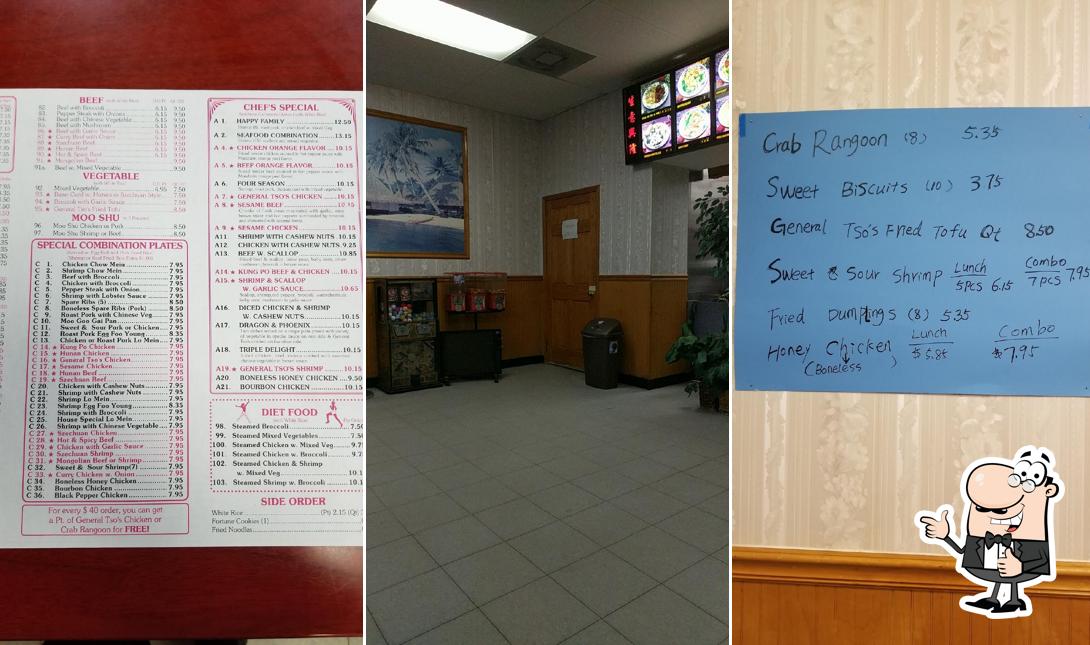 BEEF
82. Beef with Broccoli 6.15 9.50
83. Pepper Steak with Onions 6.15 9.50
84. Beef with Chinese Vegetable 6.15 9.50
85. Beef with Mushroom 6.15 9.50
86. ★ Beef with Garlic Sauce
88. ★ Szechuan Beef
89. ★ Hunan Beef
90. ★ Hot & Spicy Beef
91. ★ Mongolian Beef 9.50
91a. Beef w. Mixed Vegetable 9.50
VEGETABLE
92. Mixed Vegetable 7.50
94. ★ Broccoli with Garlic Sauce 7.50
95. ★ General Tso's Fried Tofu 8.50
MOO SHU
96. Moo Shu Chicken or Pork 8.50
97. Moo Shu Shrimp or Beef 8.50
SPECIAL COMBINATION PLATES
C 1. Chicken Chow Mein 7.95
C 2. Shrimp Chow Mein 7.95
C 3. Beef with Broccoli 7.95
C 4. Chicken with Broccoli 7.95
C 5. Pepper Steak with Onion 7.95
C 6. Shrimp with Lobster Sauce 7.95
C 7. Spare Ribs (5) 8.50
C 8. Boneless Spare Ribs (Pork) 8.50
C 9. Roast Pork with Chinese Veg. 7.95
C 10. Moo Goo Gai Pan 7.95
C 11. Sweet & Sour Pork or Chicken 7.95
C 12. Roast Pork Egg Foo Young 8.35
C 13. Chicken or Roast Pork Lo Mein 7.95
C 14. ★ Kung Po Chicken 7.95
C 15. ★ Hunan Chicken 7.95
C 16. ★ General Tso's Chicken 7.95
C 17. ★ Sesame Chicken 7.95
C 18. ★ Hunan Beef 7.95
C 19. ★ Szechuan Beef 7.95
C 20. Chicken with Cashew Nuts 7.95
C 21. Shrimp with Cashew Nuts 7.95
C 22. Shrimp Lo Mein 7.95
C 23. Shrimp Egg Foo Young 8.35
C 24. Shrimp with Broccoli 7.95
C 25. House Special Lo Mein 7.95
C 26. Shrimp with Chinese Vegetable 7.95
C 27. ★ Szechuan Chicken 7.95
C 28. ★ Hot & Spicy Beef 7.95
C 29. ★ Chicken with Garlic Sauce 7.95
C 30. ★ Szechuan Shrimp 7.95
C 31. ★ Mongolian Beef or Shrimp 7.95
C 32. Sweet & Sour Shrimp(7) 7.95
C 33. ★ Curry Chicken w. Onion 7.95
C 34. Boneless Honey Chicken 7.95
C 35. Bourbon Chicken 7.95
C 36. Black Pepper Chicken 7.95
For every $40 order, you can get
a Pt. of General Tso's Chicken or
Crab Rangoon for FREE!
CHEF'S SPECIAL
A 1. HAPPY FAMILY 12.50
A 2. SEAFOOD COMBINATION 13.15
A 4. ★ CHICKEN ORANGE FLAVOR 10.15
A 5. ★ BEEF ORANGE FLAVOR 10.15
A 6. FOUR SEASON 10.15
A 7. ★ GENERAL TSO'S CHICKEN 10.15
A 8. ★ SESAME BEEF 10.15
A 9. ★ SESAME CHICKEN 10.15
A11. SHRIMP WITH CASHEW NUTS 10.15
A12. CHICKEN WITH CASHEW NUTS 9.25
A13. BEEF W. SCALLOP 10.85
A14. ★ KUNG PO BEEF & CHICKEN 10.15
A15. ★ SHRIMP & SCALLOP
W. GARLIC SAUCE 10.65
A16. DICED CHICKEN & SHRIMP
W. CASHEW NUTS 10.15
A17. DRAGON & PHOENIX 10.15
A18. TRIPLE DELIGHT 10.15
A19. ★ GENERAL TSO'S SHRIMP 10.15
A20. BONELESS HONEY CHICKEN 9.50
A21. BOURBON CHICKEN 10.15
DIET FOOD
98. Steamed Broccoli 7.50
99. Steamed Mixed Vegetables 7.50
100. Steamed Chicken w. Mixed Veg.
101. Steamed Chicken w. Broccoli
102. Steamed Chicken & Shrimp
w. Mixed Veg
103. Steamed Shrimp w. Broccoli
SIDE ORDER
White Rice (Pt) 2.15
Fortune Cookies (1)
Fried Noodles
Crab Rangoon (8) 5.35
Sweet Biscuits (10) 3 75
General TSO's Fried Tofu Qt 8.50
Sweet & Sour Shrimp Lunch 5pcs 6.15 Combo 7pcs 7.95
Fried Dumplings (8) 5.35
Honey Chicken Lunch $5.85 Combo $7.95
(Boneless)